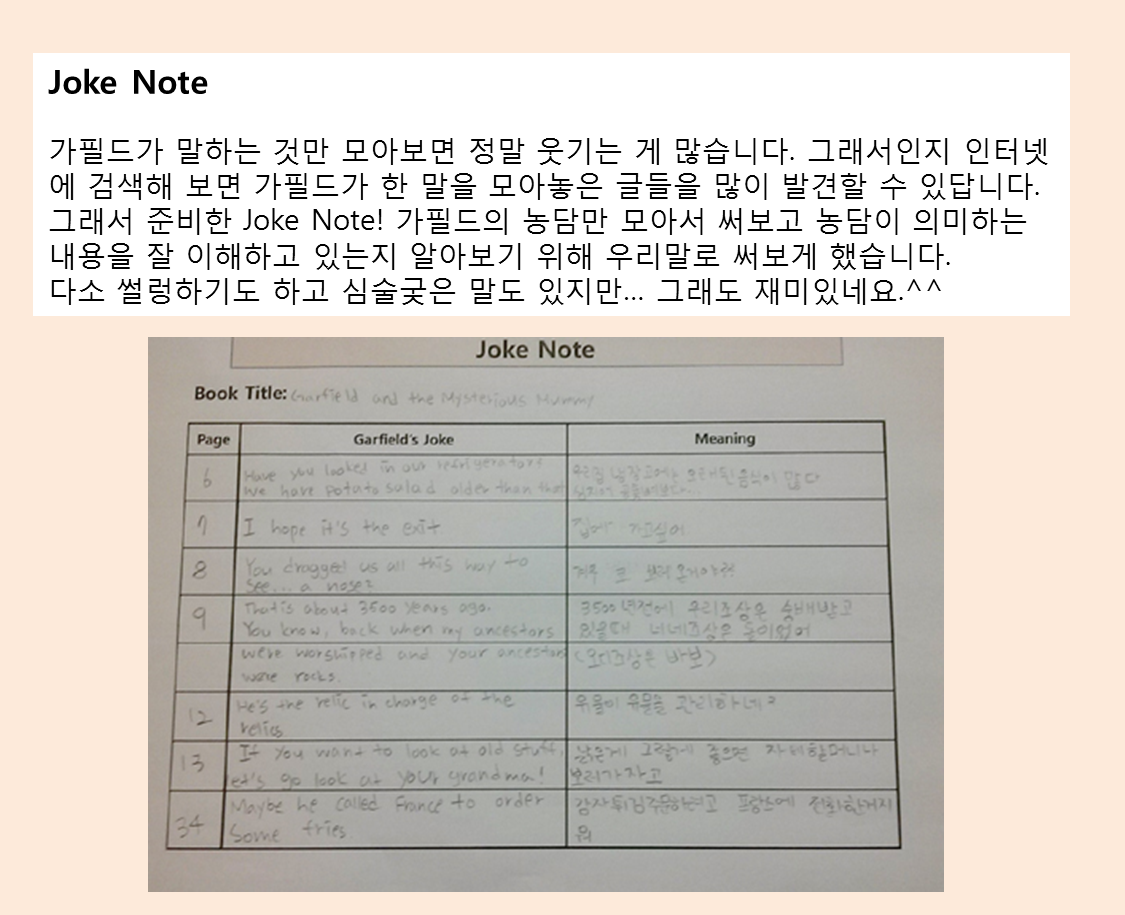 Joke Note
가필드가 말하는 것만 모아보면 정말 웃기는 게 많습니다. 그래서인지 인터넷
에 검색해 보면 가필드가 한 말을 모아놓은 글들을 많이 발견할 수 있답니다.
그래서 준비한 Joke Note! 가필드의 농담만 모아서 써보고 농담이 의미하는
내용을 잘 이해하고 있는지 알아보기 위해 우리말로 써보게 했습니다.
다소 썰렁하기도 하고 심술궂은 말도 있지만... 그래도 재미있네요.^^
Joke Note
Book Title: Garfield and the Mysterious Mummy
Page Garfield's Joke Meaning
6
Have you looked in our refrigerator?
We have potato salad older than that
우리집 냉장고에는 오래된 음식이 많다
7 I hope it's the exit 집에 가고싶어
8
You dragged us all this way to
see... a nose?
겨우 코 보러 온거야??
9
That's about 3500 years ago.
You know, back when my ancestors
3500년전에 우리조상은 숭배받고
있을때 너네조상은 돌이었어
were worshipped and your ancestors
were rocks.
조상은 바보)
12
He's the relic in charge of the
relics.
유물이 유물을 관리하네?
13
If you want to look at old stuff,
let's go look at your grandma!
낡은게 그렇게 좋으면 할머니나
보러가자고
34
Maybe he called France to order
some fries.
감자튀김주문하려고 프랑스에 전화한거지
뭐